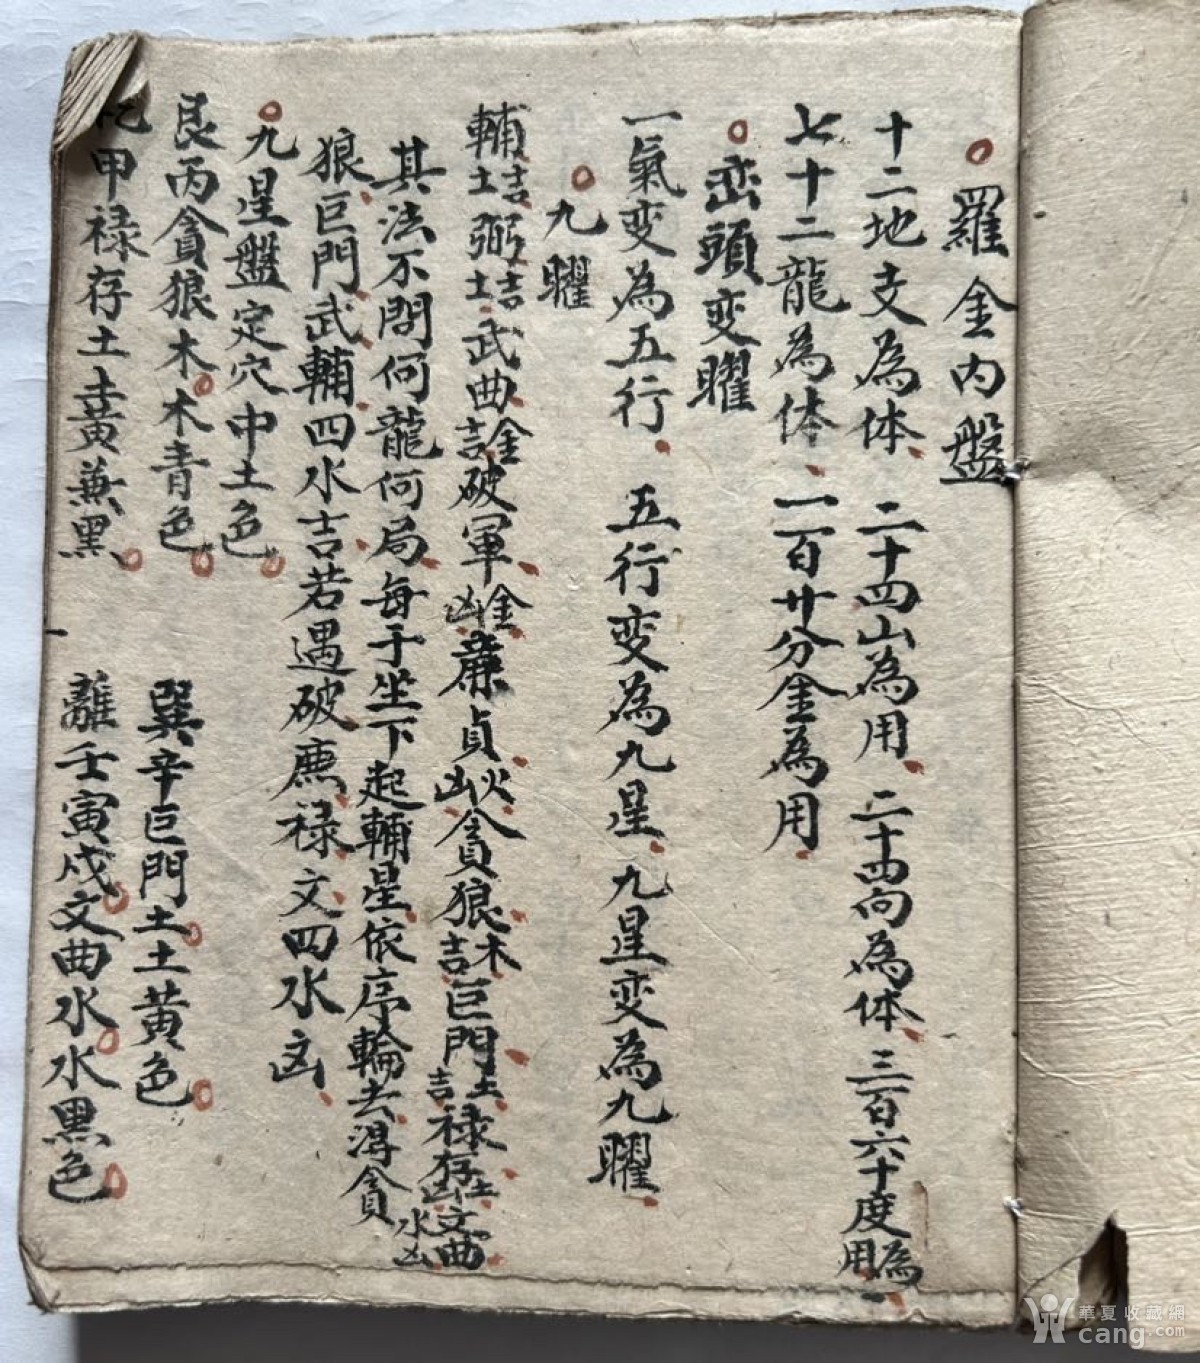 羅金内盤
十二地支為体 二十四山為用 二十四向為体 三百六十度為用
七十二龍為体 一百廿分金為用
巒頭变曜
一氣变為五行 五行变為九星 九星变為九曜
九曜
輔土吉弼土吉武曲金吉破軍金凶廉貞火凶貪狼木吉巨門土吉禄存土凶文曲水凶
其法不問何龍何局每于坐下起輔星依序輪去得貪
狼巨門武輔四水吉若遇破廉禄文四水凶
九星盤定穴中土色
艮丙貪狼木木青色 巽辛巨門土土黄色
乾甲禄存土土黄兼黑 離壬寅戌文曲水水黑色
華夏收藏網
cang.com